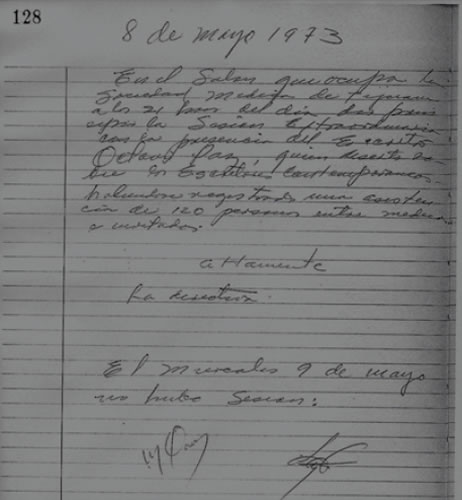 128
8 de mayo 1973
En el Salon que ocupa la
Sociedad Medica de Tijuana
a los 21 hras del dia dio prin
cipio la Sesion Extraordinaria
con la presencia del Escritor
Octavio Paz, quien diserto so-
bre los Escritores Contemporaneos
habiendose registrado una asisten
cia de 120 personas entre medicos
e invitados.
attamente
La directiva.
El miercoles 9 de mayo
no hubo sesion.